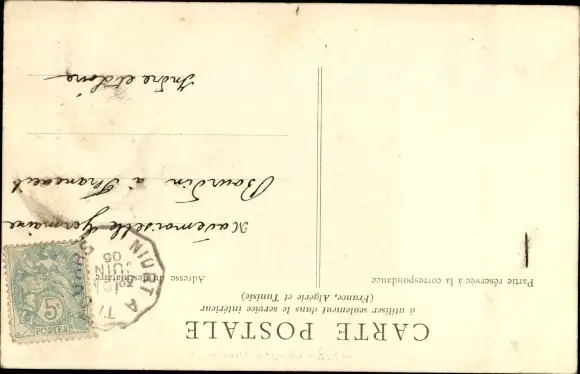 CARTE POSTALE
à utiliser seulement dans le service intérieur
(France, Algérie et Tunisie)
Partie réservée à la correspondance
Adresse du destinataire
Mademoiselle Germaine
Bourdin à Francueil
Indre et Loire
JUIN
05
5c
POSTES